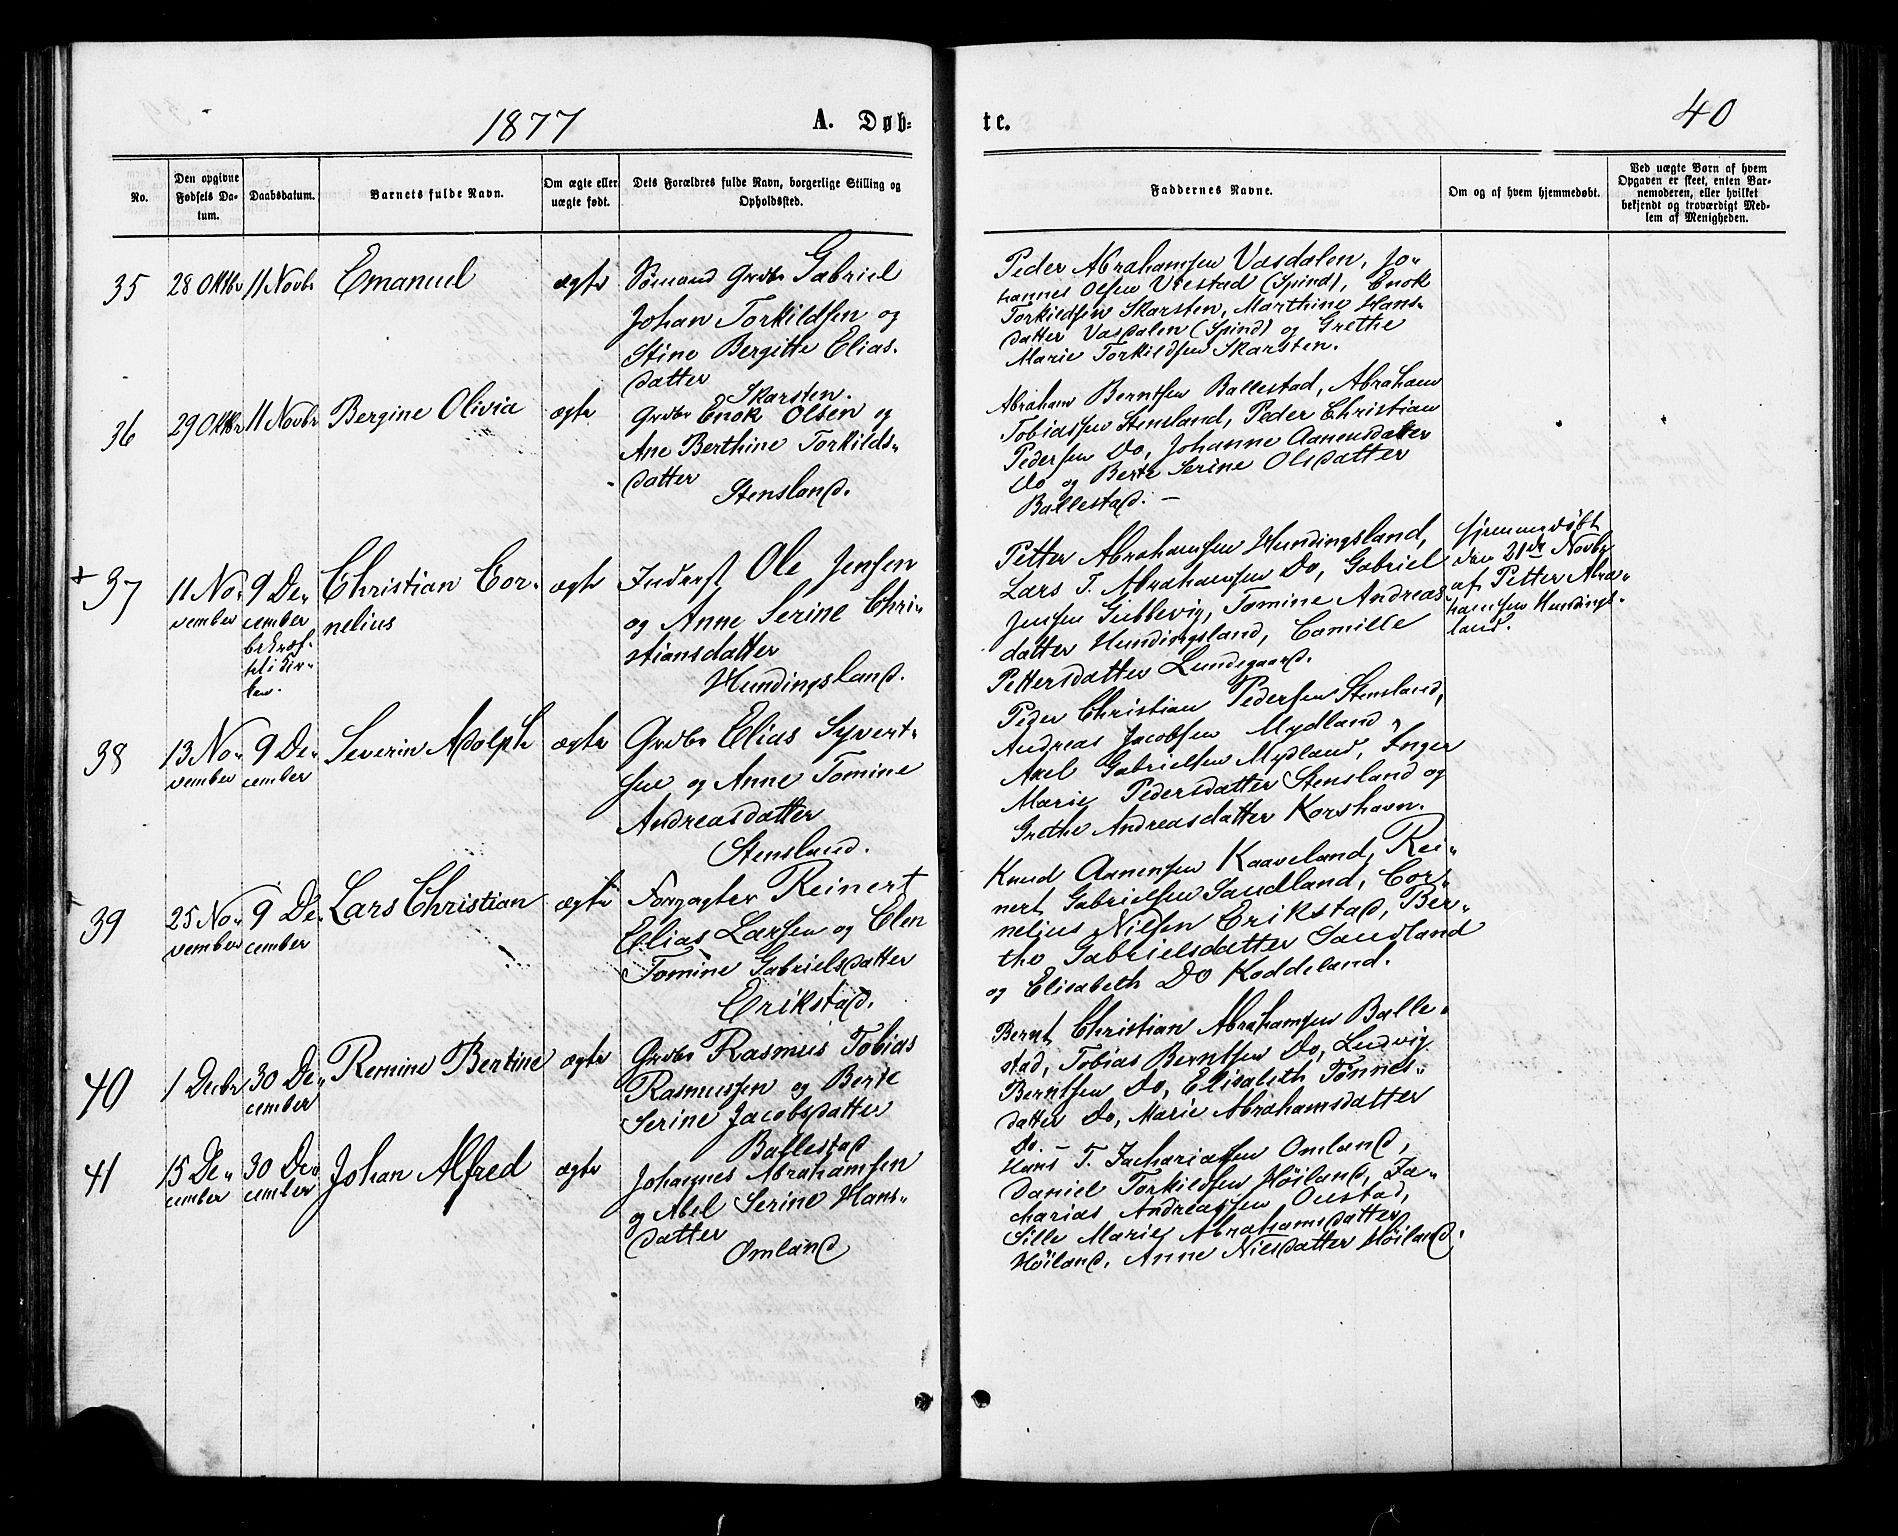 1877 A. Døb-
te. 40
No.
Den opgivne
Fødsels Da-
tum.
Daabsdatum.
Barnets fulde Navn.
Om ægte eller
uægte født.
Dets Forældres fulde Navn, borgerlige Stilling og
Opholdssted.
Faddernes Navne.
Om og af hvem hjemmedøbt.
Ved uægte Børn af hvem
Opgaven er skeet, enten Bar-
nemoderen, eller hvilket
bekjendt og troværdigt Med-
lem af Menigheden.
35 28 Oktbr 11 Novbr Emanuel ægte
Sømand Grdbr Gabriel
Johan Torkildsen og
Stine Bergitte Elias-
datter
Skarsten.
Peder Abrahamsen Vasdalen, Jo-
hannes Olsen Vrestad (Spind), Enok
Torkildsen Skarsten, Marthine Hans-
datter Vasdalen (Spind) og Grethe
Marie Torkildsen Skarsten.
36 29 Oktbr 11 Novbr Bergine Olivia ægte
Grdbr Enok Olsen og
Ane Berthine Torkilds-
datter
Stensland.
Abraham Berntsen Ballestad, Abraham
Tobiassen Stensland, Peder Christian
Pedersen Do, Johanne Aanensdatter
Do og Berte Serine Olsdatter
Ballestad. -
+ 37
11 No-
vember
9 De-
cember
bekræf-
tet i Kir-
ken.
Christian Cor-
nelius
ægte
Inderst Ole Jensen
og Anne Serine Chri-
stiansdatter
Hundingsland.
Petter Abrahamsen Hundingsland,
Lars T. Abrahamsen Do, Gabriel
Jensen Gubbevig, Tomine Andreas-
datter Hundingsland, Camille
Pettersdatter Lundegaard.
hjemmedøbt
den 21de Novbr
af Petter Abra-
hamsen Hundings-
land.
38
13 No-
vember
9 De-
cember
Severin Adolph ægte
Grdbr Elias Syvert-
sen og Anne Tomine
Andreasdatter
Stensland.
Peder Christian Pedersen Stensland,
Andreas Jacobsen Mydland,
Axel Gabrielsen Mydland, Inger
Marie Pedersdatter Stensland og
Grethe Andreasdatter Korshavn.
39
25 No-
vember
9 De-
cember
Lars Christian ægte
Forpagter Reinert
Elias Larsen og Elen
Tomine Gabrielsdatter
Erikstad.
Knud Aanensen Kaaveland, Rei-
nert Gabrielsen Sandland, Cor-
nelius Nilsen Erikstad, Ber-
the Gabrielsdatter Sandland
og Elisabeth Do Koddeland.
40
1 Decbr
30 De-
cember
Remine Bertine ægte
Grdbr Rasmus Tobias
Rasmussen og Berte
Serine Jacobsdatter
Ballestad
Bernt Christian Abrahamsen Balle-
stad, Tobias Berntsen Do, Ludvig
Berntsen Do, Elisabeth Tønnes-
datter Do, Marie Abrahamsdatter
Do. -
41
15 De-
cember
30 De-
cember
Johan Alfred ægte
Johannes Abrahamsen
og Abel Serine Hans-
datter
Omland
Hans T. Zachariasen Omland,
Daniel Torkildsen Høiland, Za-
charias Andreassen Ouestad,
Sille Marie Abrahamsdatter
Høiland, Anne Nilsdatter Høiland.